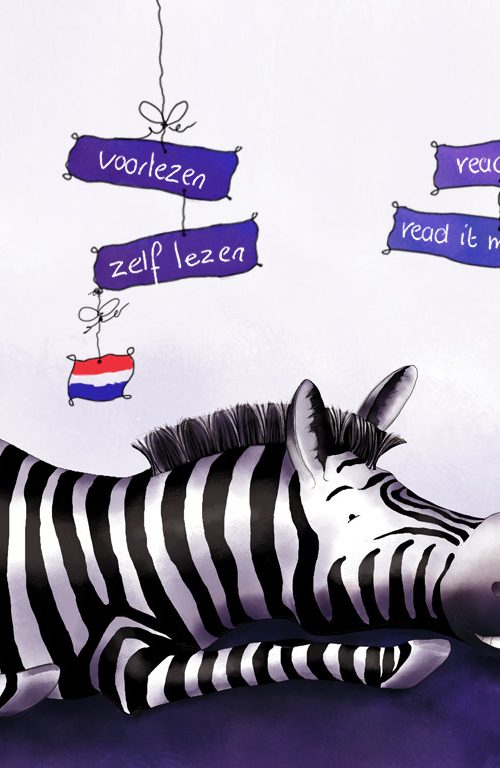 voorlezen
zelf lezen
read it